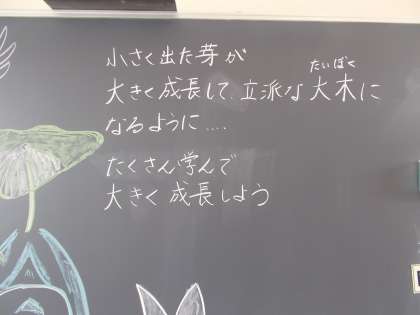 小さく出た芽が
たいぼく
大きく成長して、立派な大木に
なるように....
たくさん学んで
大きく成長しよう